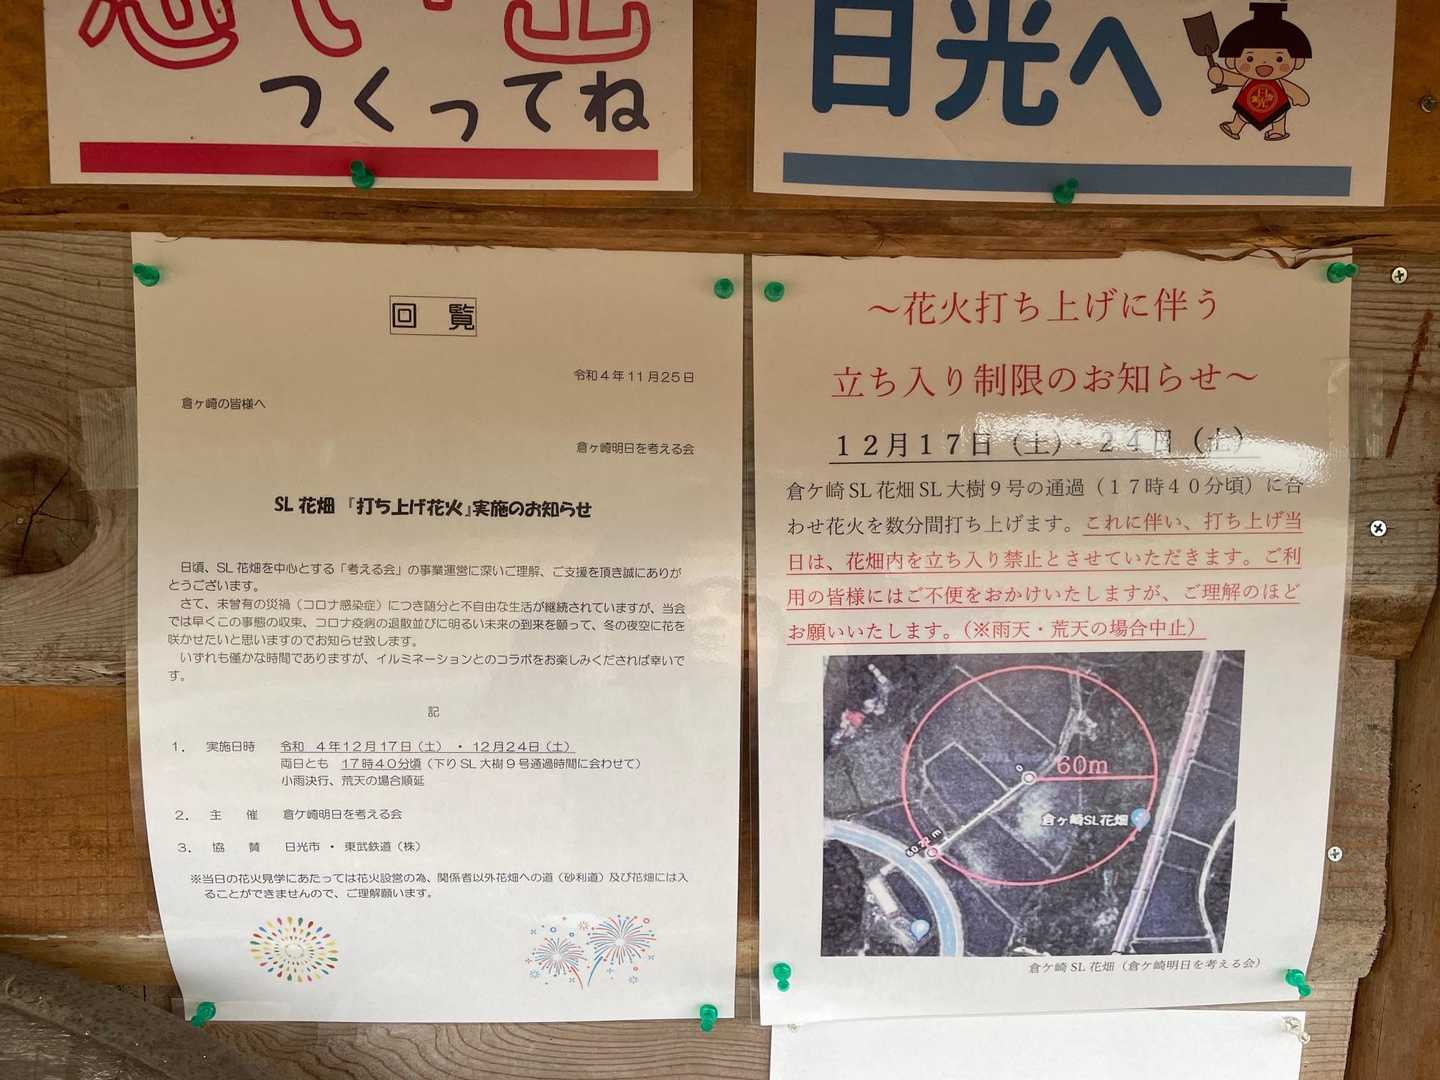 思い出
つくってね
日光へ
回覧
令和4年11月25日
倉ヶ崎の皆様へ
倉ヶ崎明日を考える会
SL花畑『打ち上げ花火』実施のお知らせ
日頃、SL花畑を中心とする「考える会」の事業運営に深いご理解、ご支援を頂き誠にありが
とうございます。
さて、未曾有の災禍（コロナ感染症）につき随分と不自由な生活が継続されていますが、当会
では早くこの事態の収束、コロナ疫病の退散並びに明るい未来の到来を願って、冬の夜空に花を
咲かせたいと思いますのでお知らせ致します。
いずれも僅かな時間でありますが、イルミネーションとのコラボをお楽しみくだされば幸いで
す。
記
1. 実施日時 令和 4年12月17日（土）・12月24日（土）
両日とも 17時40分頃（下りSL大樹9号通過時間に会わせて）
小雨決行、荒天の場合順延
2. 主催 倉ヶ崎明日を考える会
3. 協賛 日光市・東武鉄道（株）
※当日の花火見学にあたっては花火設営の為、関係者以外花畑への道（砂利道）及び花畑には入
ることができませんので、ご理解願います。
～花火打ち上げに伴う
立ち入り制限のお知らせ～
12月17日（土）・24日（土）
倉ケ崎SL花畑SL大樹9号の通過（17時40分頃）に合
わせ花火を数分間打ち上げます。これに伴い、打ち上げ当
日は、花畑内を立ち入り禁止とさせていただきます。ご利
用の皆様にはご不便をおかけいたしますが、ご理解のほど
お願いいたします。（※雨天・荒天の場合中止）
60m
倉ヶ崎SL花畑
倉ケ崎SL花畑（倉ケ崎明日を考える会）